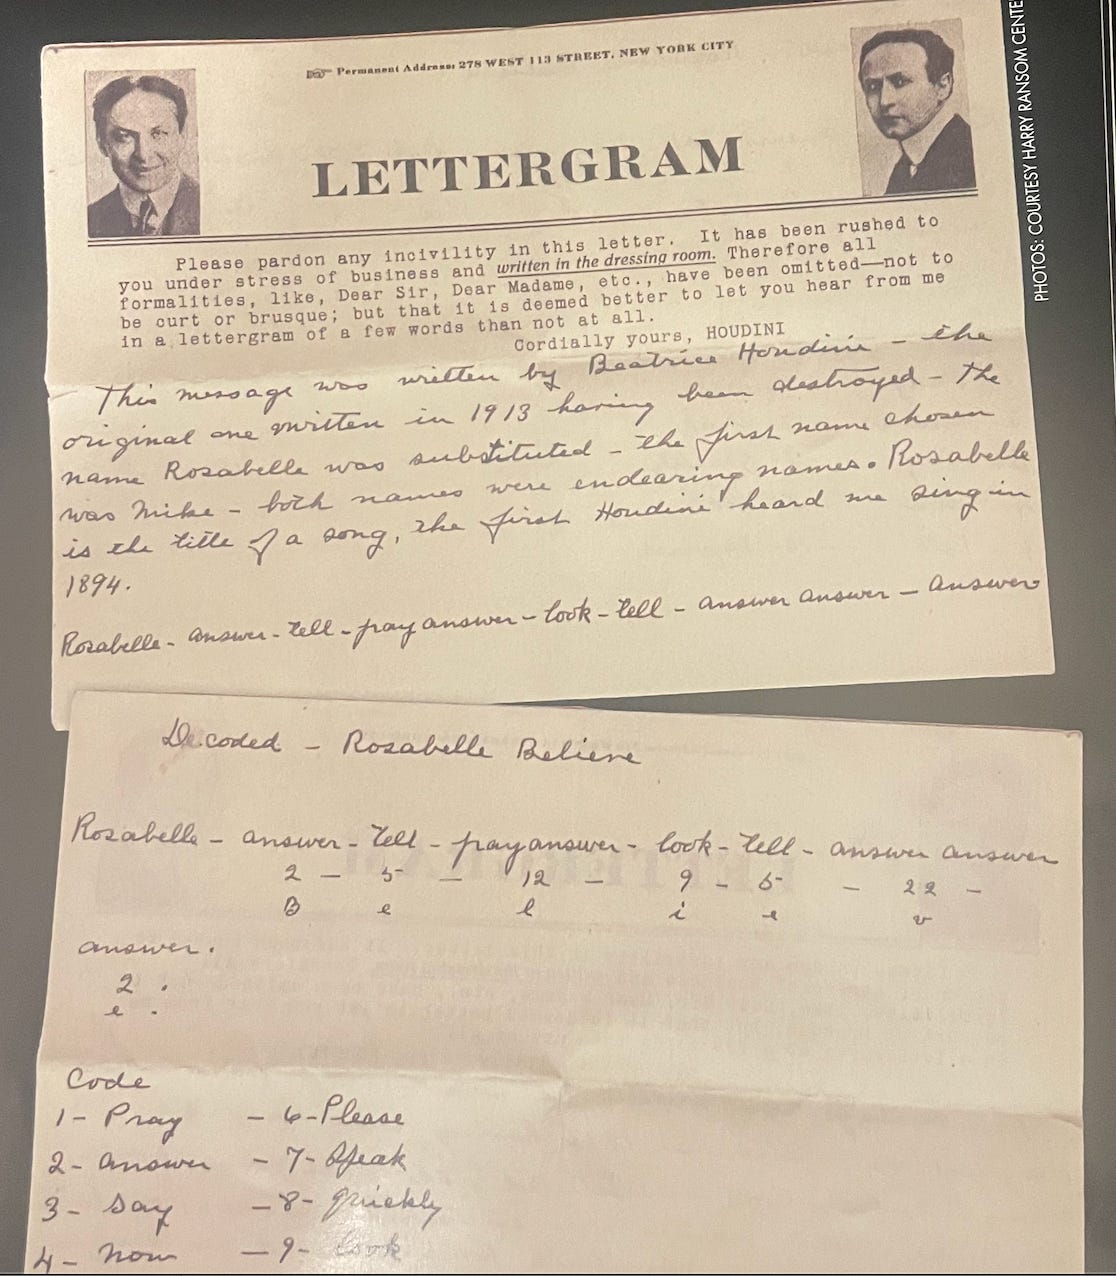 PHOTOS: COURTESY HARRY RANSOM CENTE
Permanent Address: 278 WEST 113 STREET, NEW YORK CITY
LETTERGRAM
Please pardon any incivility in this letter. It has been rushed to
you under stress of business and written in the dressing room. Therefore all
formalities, like, Dear Sir, Dear Madame, etc., have been omitted—not to
be curt or brusque; but that it is deemed better to let you hear from me
in a lettergram of a few words than not at all.
Cordially yours, HOUDINI
This message was written by Beatrice Houdini - the
original one written in 1913 having been destroyed - The
name Rosabelle was substituted - the first name chosen
was Mike - both names were endearing names. Rosabelle
is the title of a song, the first Houdini heard me sing in
1894.
Rosabelle - answer - tell - pray answer - look - tell - answer answer - answer
Decoded - Rosabelle Believe
Rosabelle - answer - tell - pray answer - look - tell - answer answer
2 - 5 - 12 - 9 - 5 - 22 -
B e l i e v
answer.
2.
e.
Code
1 - Pray - 6 - Please
2 - answer - 7 - Speak
3 - Say - 8 - quickly
4 - now - 9 - Look